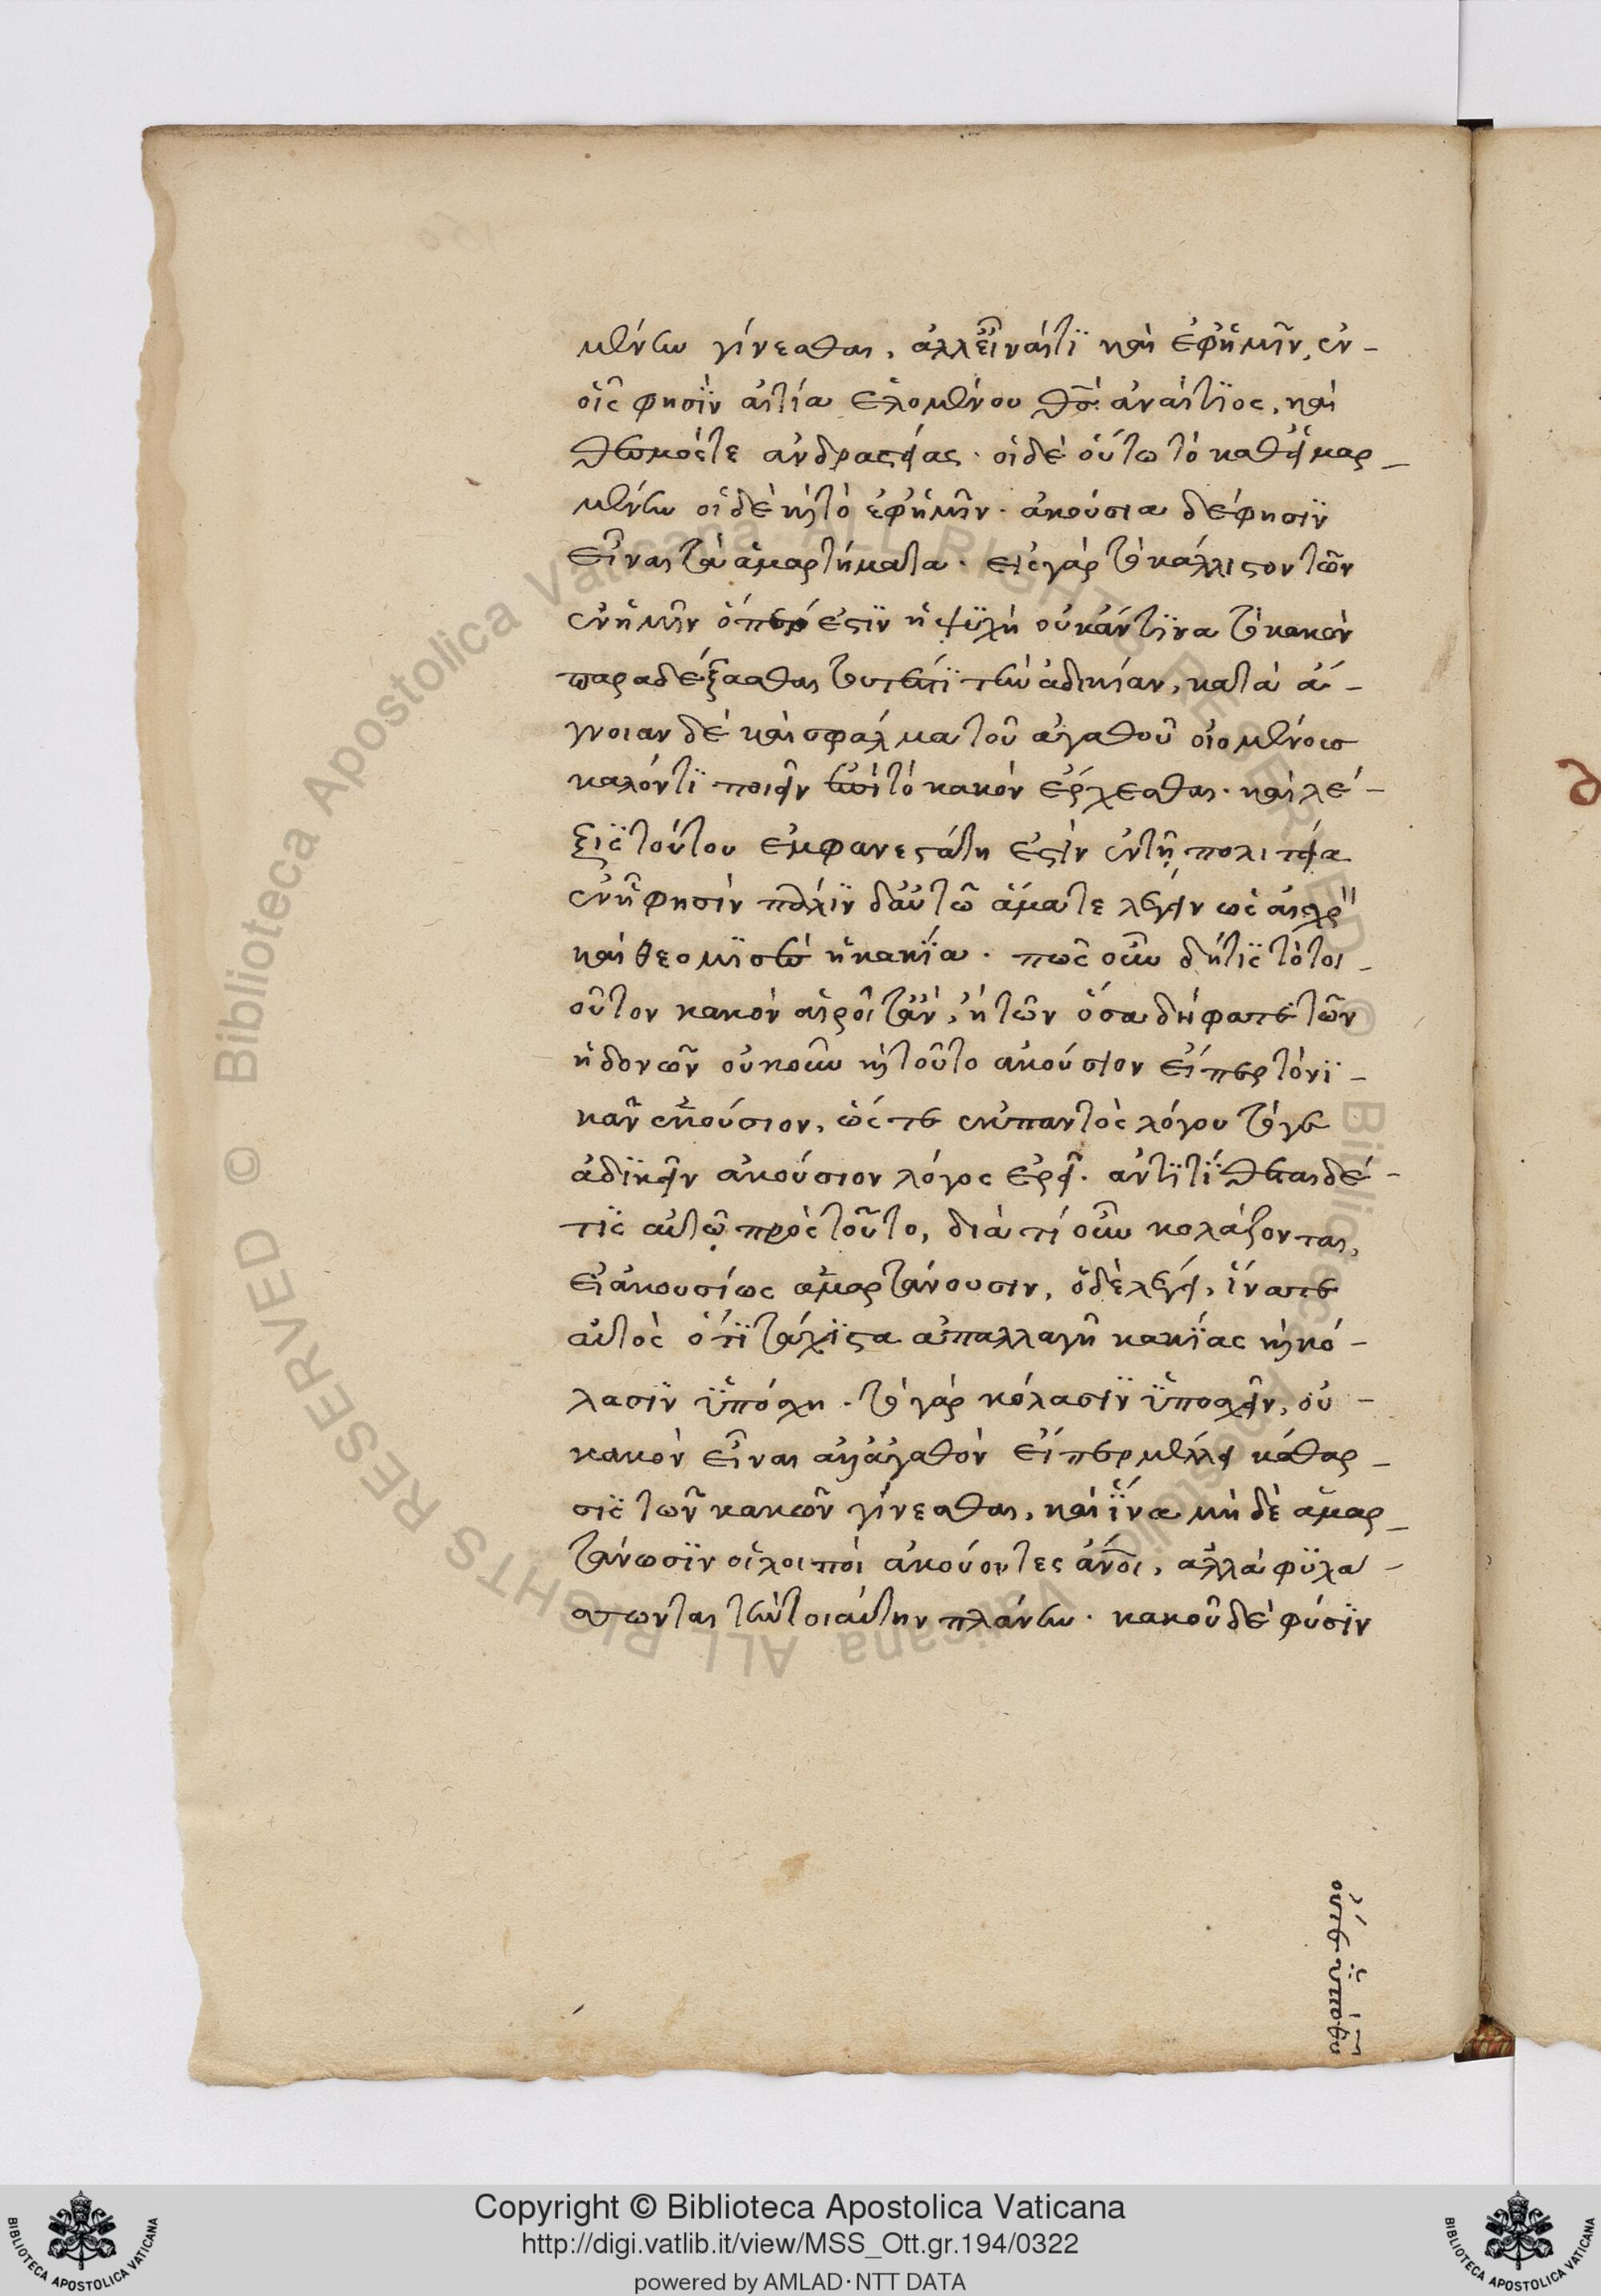 μένην γίνεσθαι, ἀλλ' εἶναί τι καὶ ἐφ' ἡμῖν, ἐν-
οἷς φησὶν αἰτία ἑλομένου θς ἀναίτιος, καὶ
ἀνδραστείας. οἱ δὲ οὕτω τὸ καθ' εἱμαρ-
μένην οἱ δὲ κ τὸ ἐφ' ἡμῖν. ἀκούσια δέ φησιν
εἶναι τὰ ἁμαρτήματα. εἰς γὰρ τὸ κάλλιστον τῶν
ἐν ἡμῖν ὅπερ ἐστὶν ἡ ψυχὴ οὐκ ἄν τινα τὸ κακὸν
παραδέξασθαι τουτέστι τὴν ἀδικίαν, κατὰ ἄ-
γνοιαν δὲ καὶ σφάλμα τοῦ ἀγαθοῦ οἰομένους
καλόν τι ποιεῖν ἐπὶ τὸ κακὸν ἔρχεσθαι. καὶ λέ-
ξις τούτου ἐμφανεστάτη ἐστὶν ἐν τῇ πολιτεία
ἐν ᾗ φησὶν πάλιν δ' αὖ τῶ ἅμα τε λέγειν ὡς αἰσχρ
καὶ θεομισὴς ἡ κακία. πῶς οὖν δή τις τὸ τοι-
οῦτον κακὸν αἱροῖτ' ἄν, ἥττων ὅσα δὴ φατὲ τῶν
ἡδονῶν οὐκοῦν κ τοῦτο ἀκούσιον εἴπερ τὸ νι-
κᾶν ἑκούσιον, ὥστε ἐκ παντὸς λόγου τό γε
ἀδικεῖν ἀκούσιον λόγος ἐρεῖ. ἀντιτίθεται δέ
τις αὐτῷ πρὸς τοῦτο, διὰ τί οὖν κολάζονται,
εἰ ἀκουσίως ἁμαρτάνουσιν, ὁ δὲ λέγει, ἵνα τε
αὐτὸς ὅτι τάχιστα ἀπαλλαγῇ κακίας κ κό-
λασιν ὑπόσχη. τὸ γὰρ κόλασιν ὑποσχεῖν, οὐ-
κακὸν εἶναι ἀλλ' ἀγαθὸν εἴπερ μέλλει κάθαρ-
σις τῶν κακῶν γίνεσθαι, καὶ ἵνα μὴ δὲ ἁμαρ-
τάνωσιν οἱ λοιποὶ ἀκούοντες ἄνοι, ἀλλὰ φυλά-
ττωνται τὴν τοιαύτην πλάνην. κακοῦ δὲ φύσιν
Copyright © Biblioteca Apostolica Vaticana
http://digi.vatlib.it/view/MSS_Ott.gr.194/0322
powered by AMLAD·NTT DATA